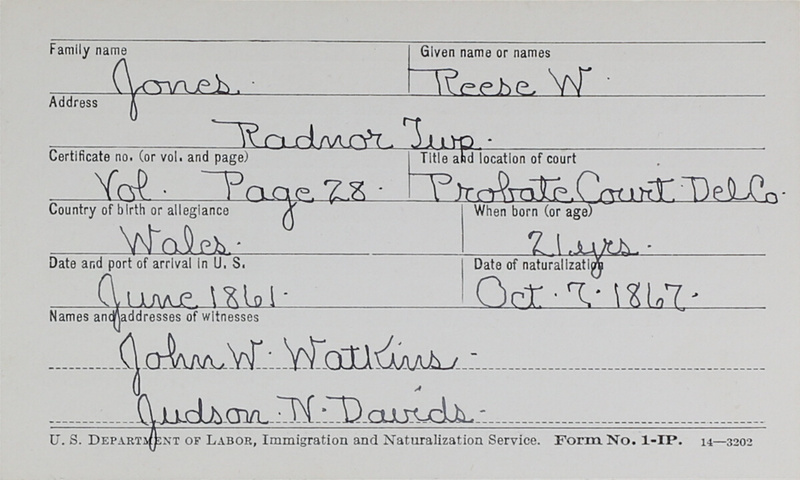 Family name Given name or names
Jones. Reese W.
Address
Radnor Twp.
Certificate no. (or vol. and page) Title and location of court
Vol. Page 28. Probate Court Del Co.
Country of birth or allegiance When born (or age)
Wales. 21 yrs.
Date and port of arrival in U. S. Date of naturalization
June 1861. Oct. 7. 1867.
Names and addresses of witnesses
John W. Watkins -
Judson. N. Davids -
U. S. DEPARTMENT OF LABOR, Immigration and Naturalization Service. Form No. 1-IP. 14—3202